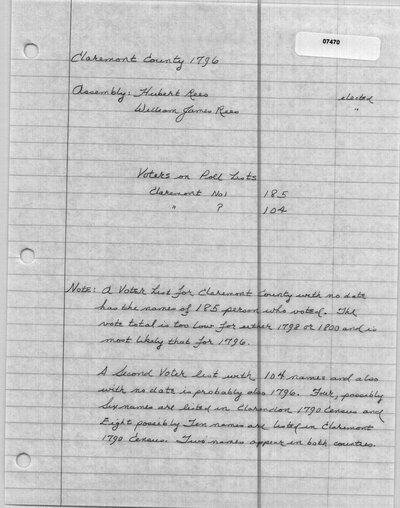 07470
Claremont County 1796
Assembly: Hubert Rees elected
William James Rees "
Voters on Poll Lists
Claremont No 1 185
" ? 104
Note: A Voter List for Claremont County with no date
has the names of 185 person who voted. The
vote total is too low for either 1798 or 1800 and is
most likely that for 1796.
A Second Voter list with 104 names and also
with no date is probably also 1796. Four, possibly
Six names are listed in Clarendon 1790 Census and
Eight possibly Ten names are listed in Claremont
1790 Census. Two names appear in both counties.